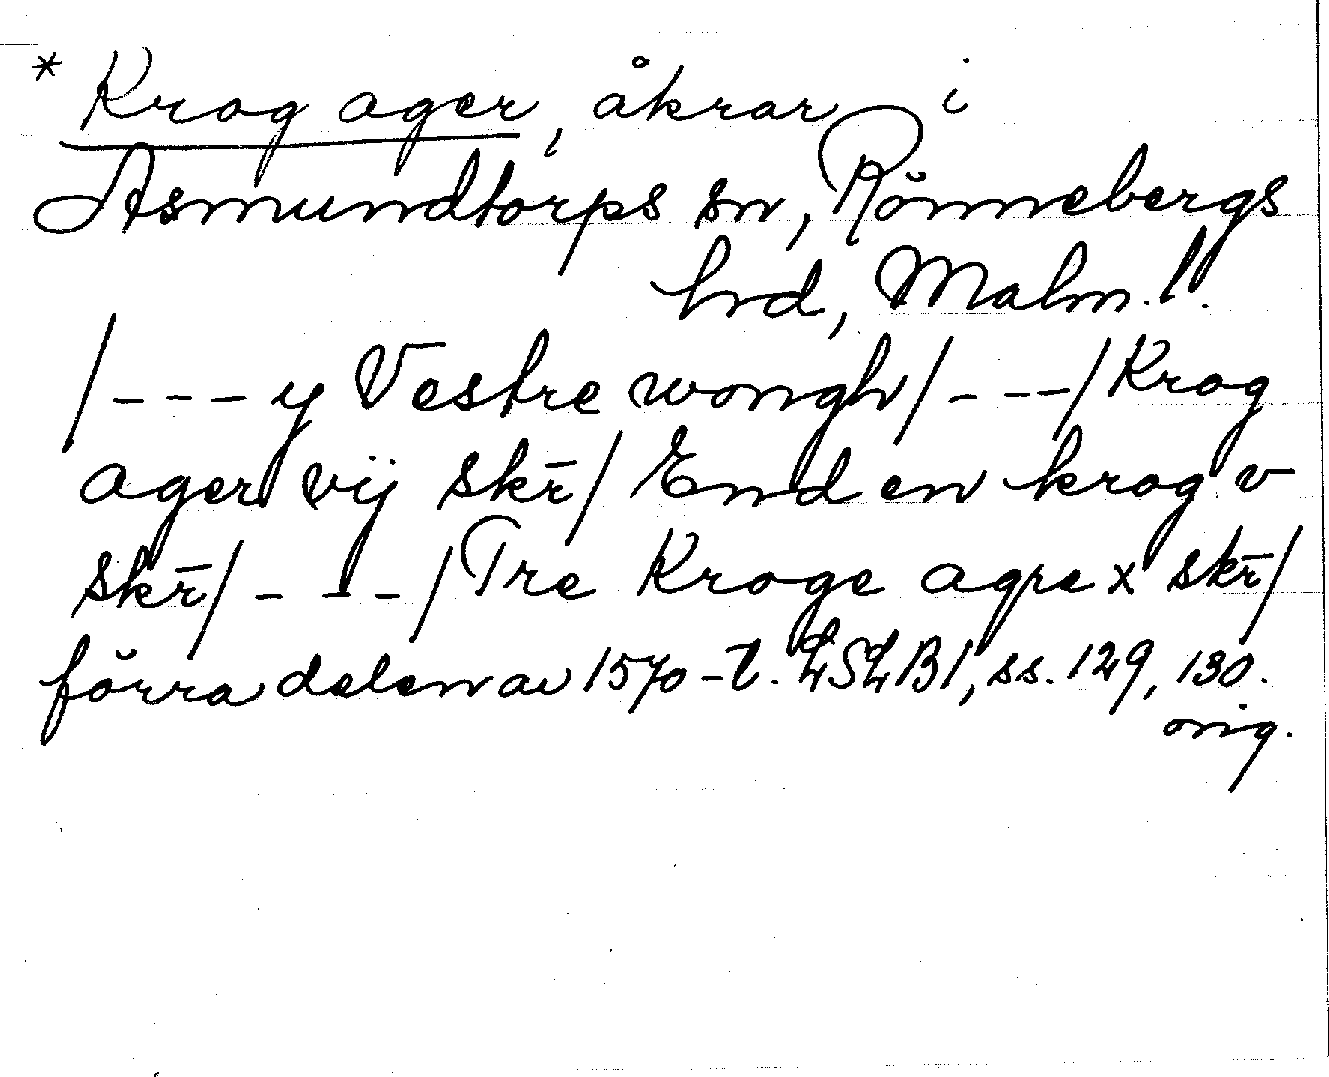 * Krog ager, åkrar i
Asmundtorps sn, Rönnebergs
hrd, Malm. l.
/ - - - y Vestre wongh / - - - / Krog
ager vij skr̄ / End en krog v
skr̄ / - - - / Tre Kroge agre x skr̄ /
förra delen av 1570-t. LSLB1, ss. 129, 130.
orig.